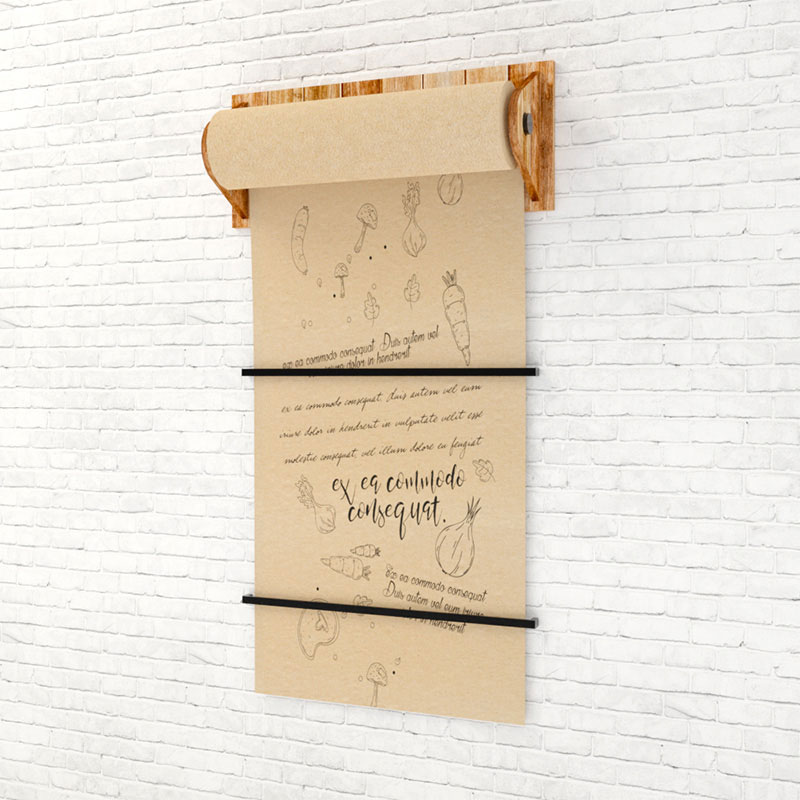 ex ea commodo consequat. Duis autem vel
dolor in hendrerit
ex ea commodo consequat. Duis autem vel eum
iriure dolor in hendrerit in vulputate velit esse
molestie consequat, vel illum dolore eu feugiat
ex ea commodo
consequat.
ex ea commodo consequat
Duis autem vel eum iriure
in hendrerit